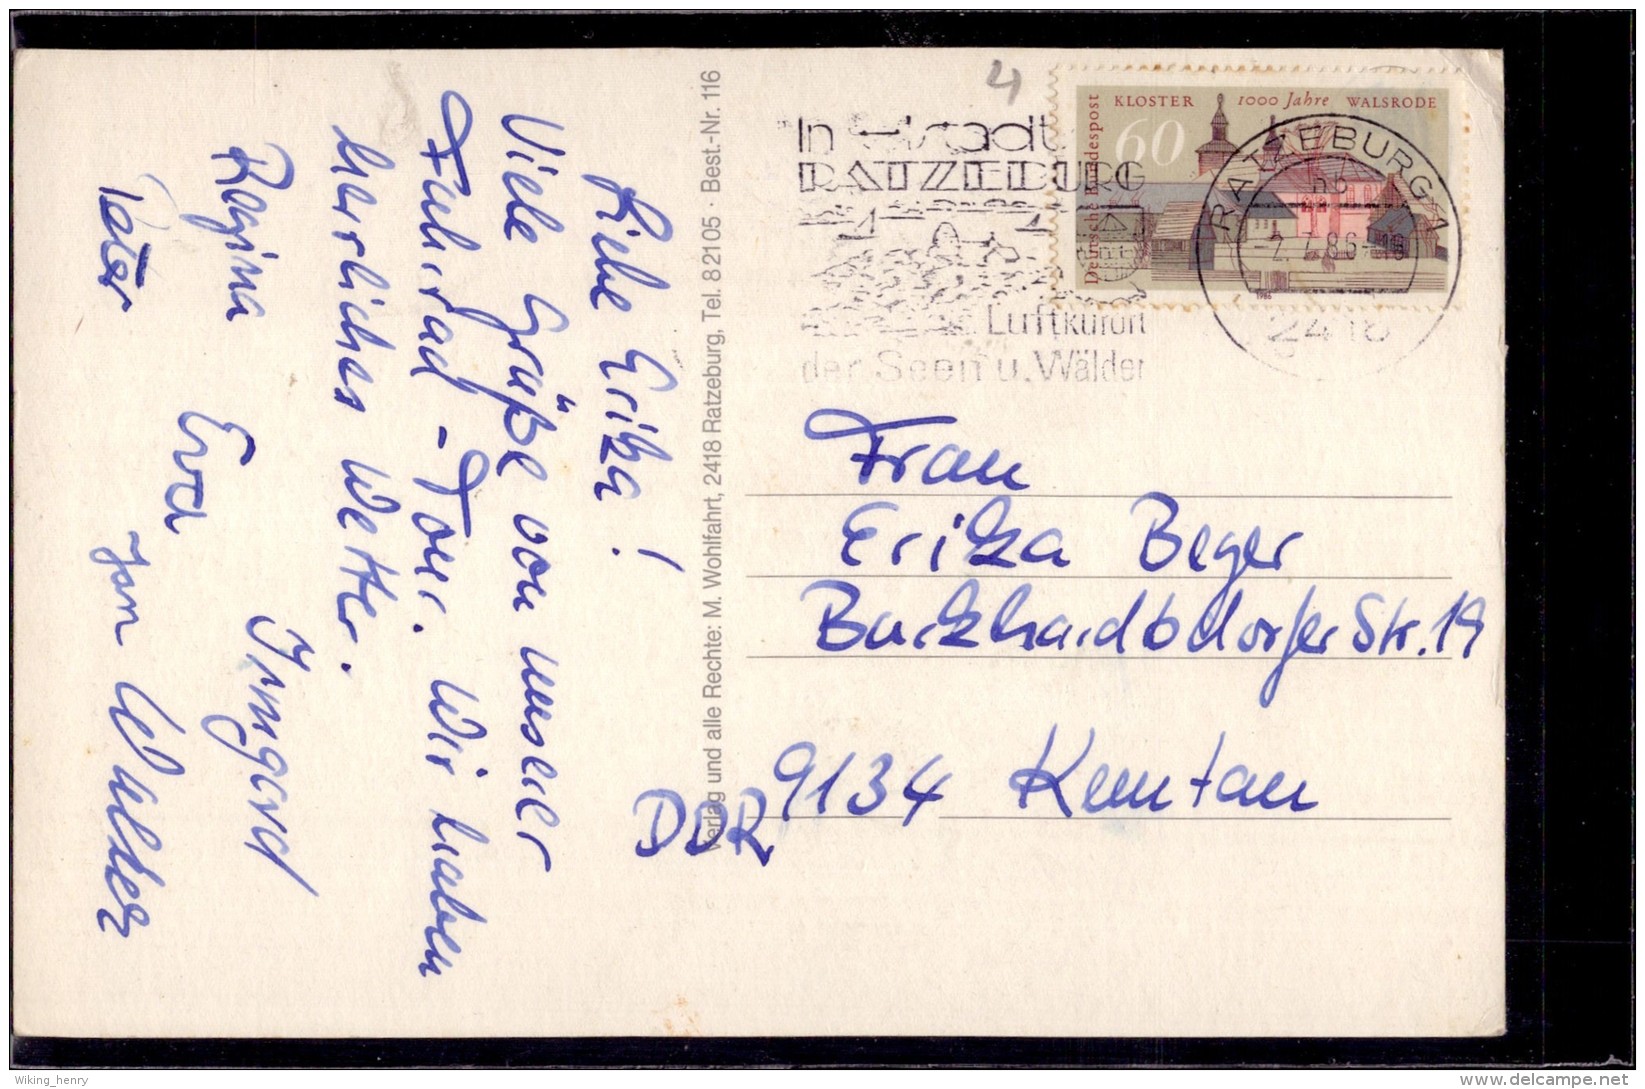 Liebe Erika!
Viele Grüße von unserer
Fahrrad-Tour. Wir haben
herrliches Wetter.
Regina Irmgard
Eva
Peter Jan
Verlag und alle Rechte: M. Wohlfahrt, 2418 Ratzeburg, Tel. 82105 · Best.-Nr. 116
4
In
RATZEBURG
Luftkurort
der Seen u. Wälder
Deutsche Bundespost
KLOSTER 1000 Jahre WALSRODE
60
1986
RATZEBURG 1
2418
Frau
Erika Beger
Burkhardtsdorfer Str. 19
9134 Kemtau
DDR
Wiking_henry
www.delcampe.net